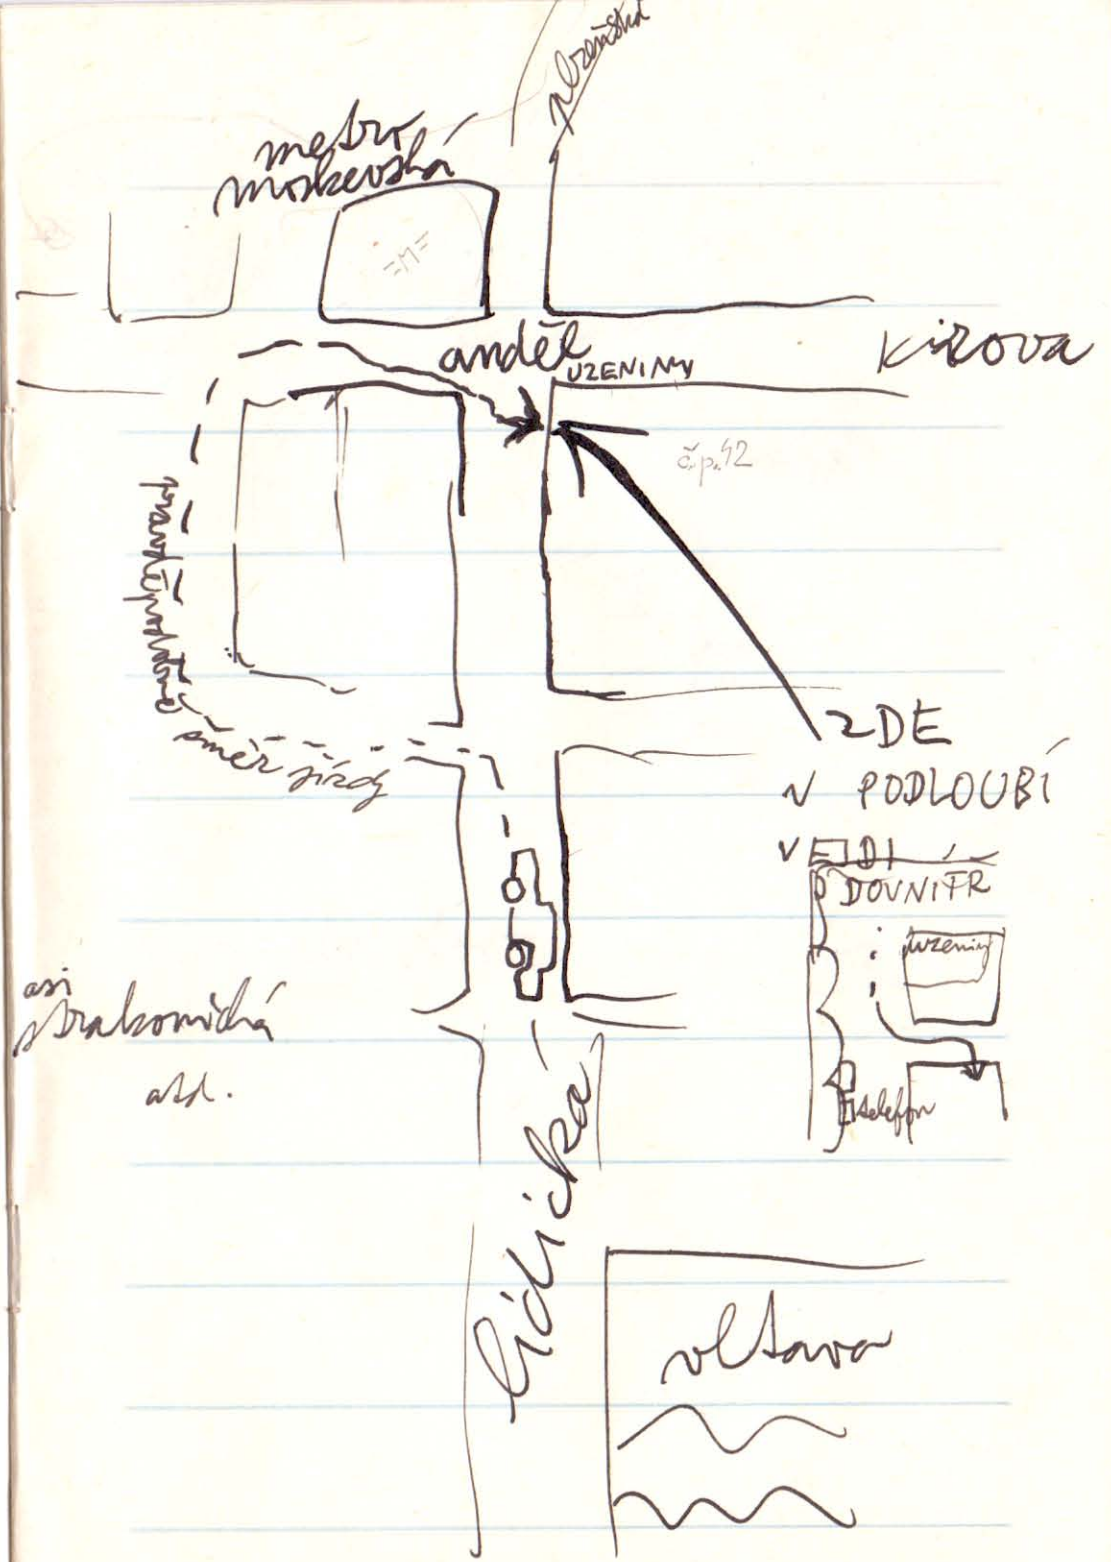 plzeňská
metro
moskevská
=M=
anděl
Kirova
UZENINY
č.p. 42
směr jízdy
ZDE
V PODLOUBÍ
VEJDI
DOVNITR
uzeniny
telefon
asi
strakonická
atd.
lidická
vltava